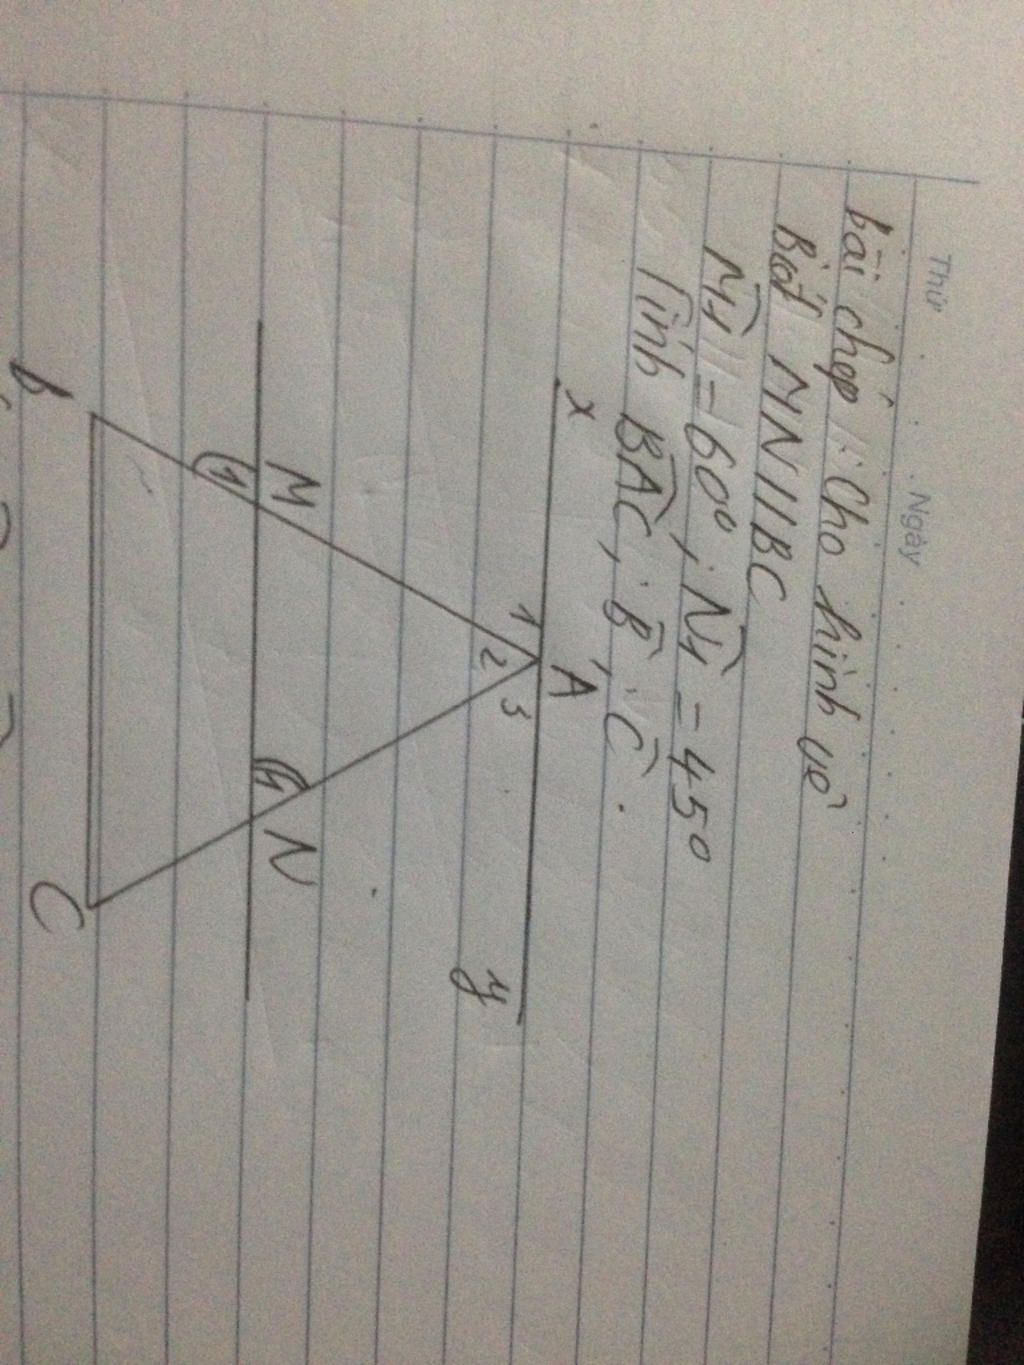 Thứ
Ngày
bài chép : Cho hình vẽ
Biết MN//BC
M̂1 = 60⁰ ; N̂1 = 45⁰
Tính BÂC ; B̂ ; Ĉ .
x
A
y
1
2
3
M
1
N
1
B
C